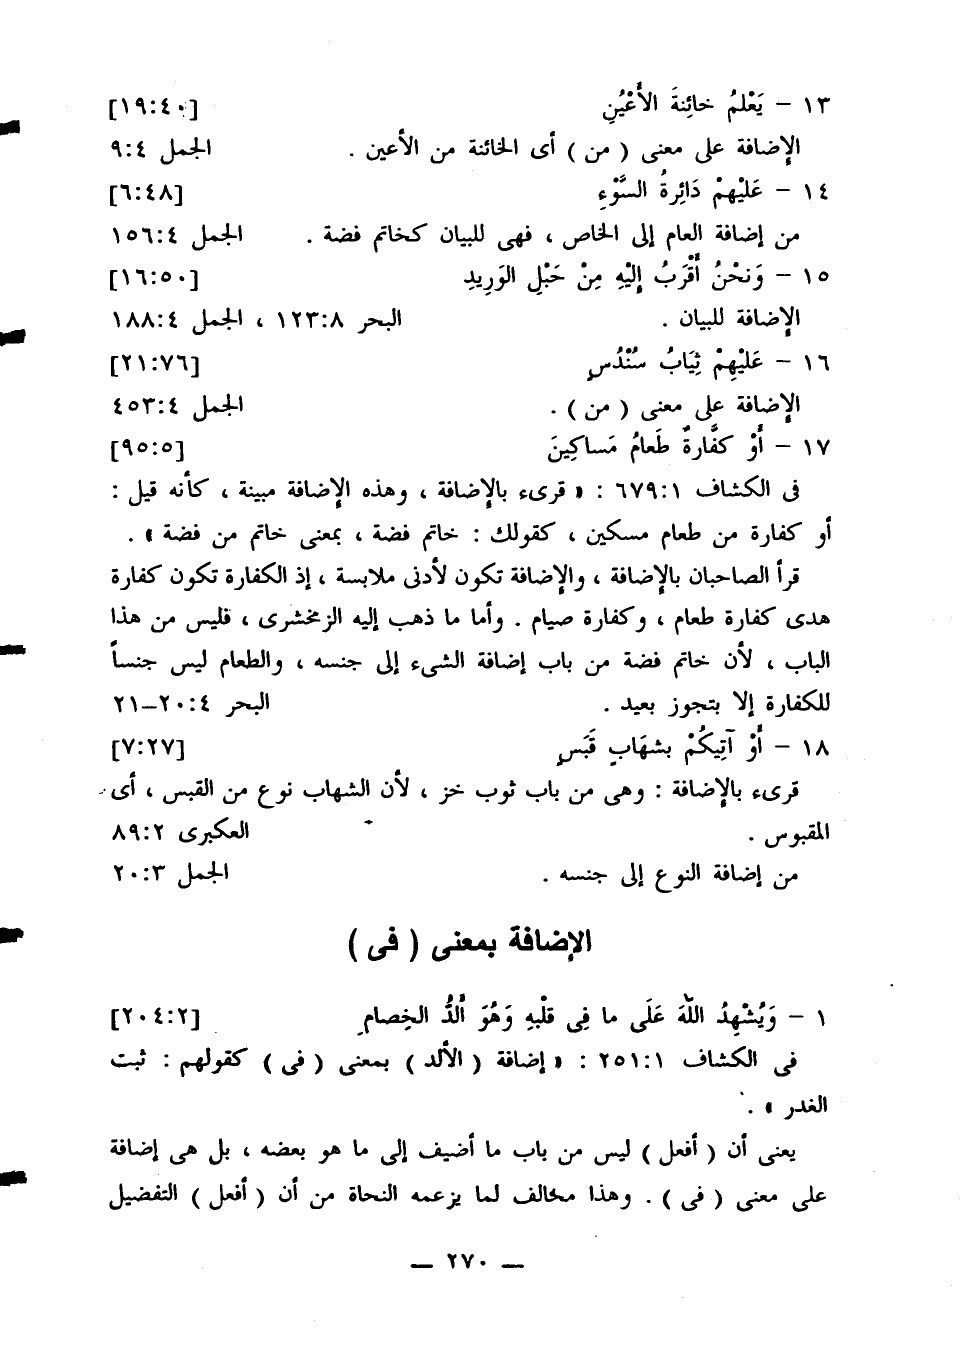 ١٣ – يَعْلمُ خائِنةَ الأَعْيُنِ [١٩:٤٠]
الإضافة على معنى ( من ) أى الخائنة من الأعين . الجمل ٩:٤
١٤ – عَلَيْهِمْ دَائِرةُ السَّوْءِ [٦:٤٨]
من إضافة العام إلى الخاص ، فهى للبيان كخاتم فضة . الجمل ١٥٦:٤
١٥ – وَنحْنُ أَقْرَبُ إلَيْهِ مِنْ حَبْلِ الوَرِيدِ [١٦:٥٠]
الإضافة للبيان . البحر ١٢٣:٨ ، الجمل ١٨٨:٤
١٦ – عَليْهِمْ ثِيَابُ سُنْدُسٍ [٢١:٧٦]
الإضافة على معنى ( من ) . الجمل ٤٥٣:٤
١٧ – أَوْ كفَّارةٌ طَعامُ مَساكِينَ [٩٥:٥]
فى الكشاف ٦٧٩:١ : « قرىء بالإضافة ، وهذه الإضافة مبينة ، كأنه قيل :
أو كفارة من طعام مسكين ، كقولك : خاتم فضة ، بمعنى خاتم من فضة » .
قرأ الصاحبان بالإضافة ، والإضافة تكون لأدنى ملابسة ، إذ الكفارة تكون كفارة
هدى كفارة طعام ، وكفارة صيام . وأما ما ذهب إليه الزمخشرى ، فليس من هذا
الباب ، لأن خاتم فضة من باب إضافة الشىء إلى جنسه ، والطعام ليس جنساً
للكفارة إلا بتجوز بعيد . البحر ٢٠:٤–٢١
١٨ – أَوْ آتِيكُمْ بشهَابٍ قَبَسٍ [٧:٢٧]
قرىء بالإضافة : وهى من باب ثوب خز ، لأن الشهاب نوع من القبس ، أى
المقبوس . العكبرى ٨٩:٢
من إضافة النوع إلى جنسه . الجمل ٢٠:٣
الإضافة بمعنى ( فى )
١ – وَيُشْهِدُ اللّهَ عَلَى ما فِى قلْبهِ وَهُوَ أَلدُّ الخِصامِ [٢٠٤:٢]
فى الكشاف ٢٥١:١ : « إضافة ( الألد ) بمعنى ( فى ) كقولهم : ثبت
الغدر » .
يعنى أن ( أفعل ) ليس من باب ما أضيف إلى ما هو بعضه ، بل هى إضافة
على معنى ( فى ) . وهذا مخالف لما يزعمه النحاة من أن ( أفعل ) التفضيل
— ٢٧٠ —